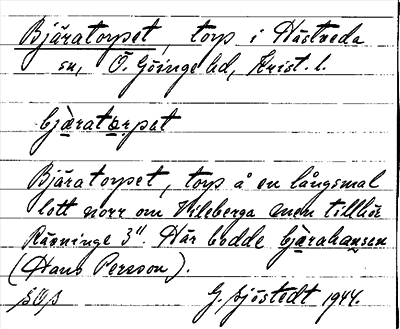 Bjäratorpet, torp i Hästveda
sn, Ö. Göinge hd, Krist. l.
bjæratorpat
Bjäratorpet, torp å en långsmal
lott norr om Vileberga men tillhör
Rävninge 3". Här bodde bjærahansen
(Hans Persson).
G. Sjöstedt 1944.